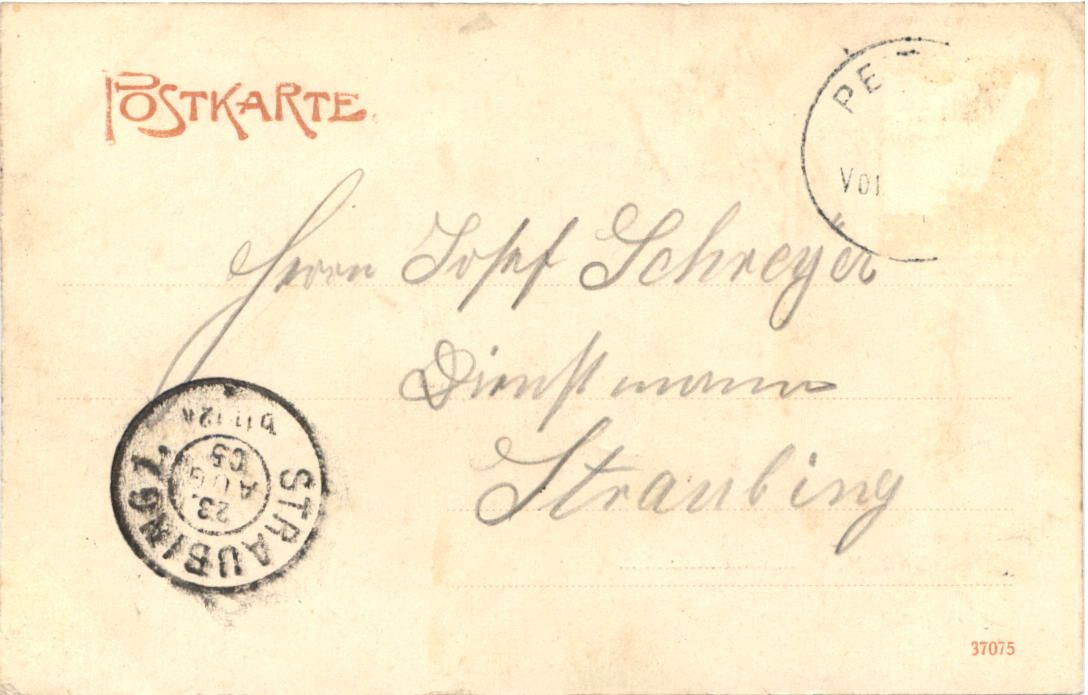 POSTKARTE
PE
VOR
Herrn Josef Schreyer
Dienstmann
Straubing
STRAUBING 1.
23.
AUG
05
37075